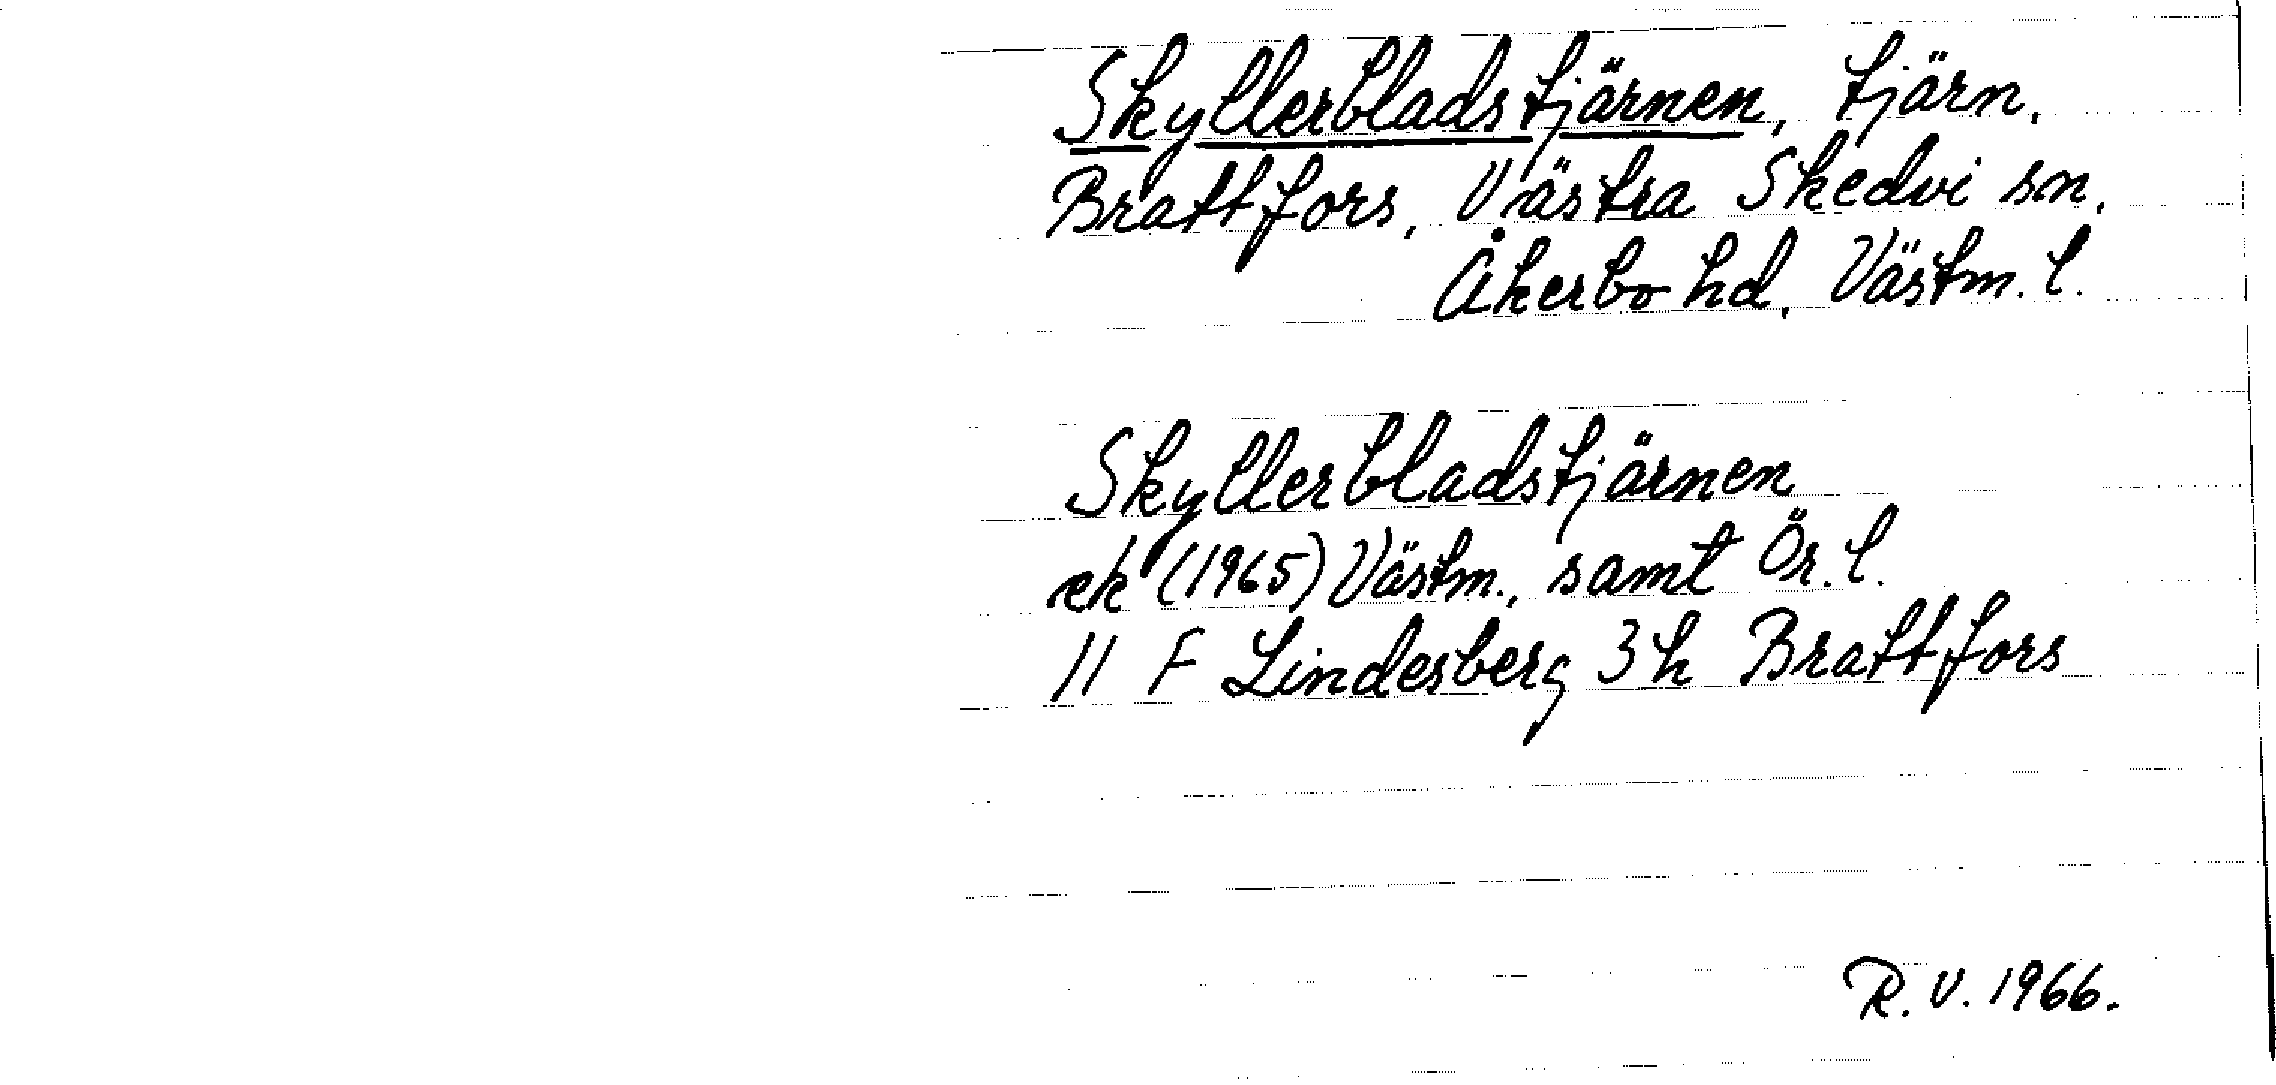 Skyllerbladstjärnen, tjärn.
Brattfors, Västra Skedvi sn.
Åkerbo hd, Västm. l.
Skyllerbladstjärnen
ek (1965) Västm., samt Ör. l.
11 F Lindesberg 3h Brattfors
R. V. 1966.